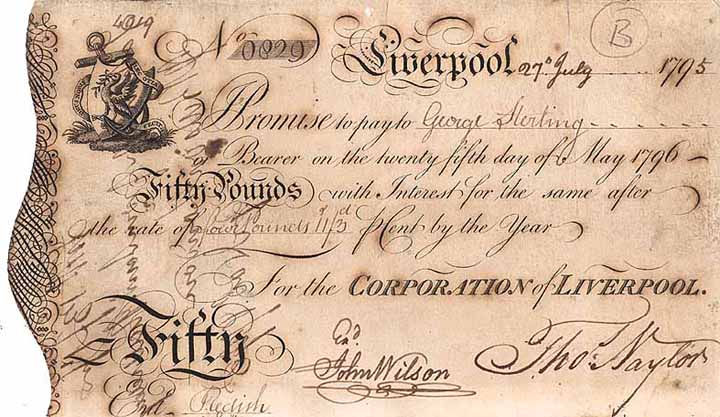 4019
B
No. 0829 Liverpool 27th July 1795
Promise to pay to George Sterling
or Bearer on the twenty fifth day of May 1796
Fifty Pounds with Interest for the same after
the rate of four Pounds 11/3d P Cent by the Year
For the CORPORATION of LIVERPOOL.
Fifty
Exd John Wilson
Thos Naylor
Entd Redish